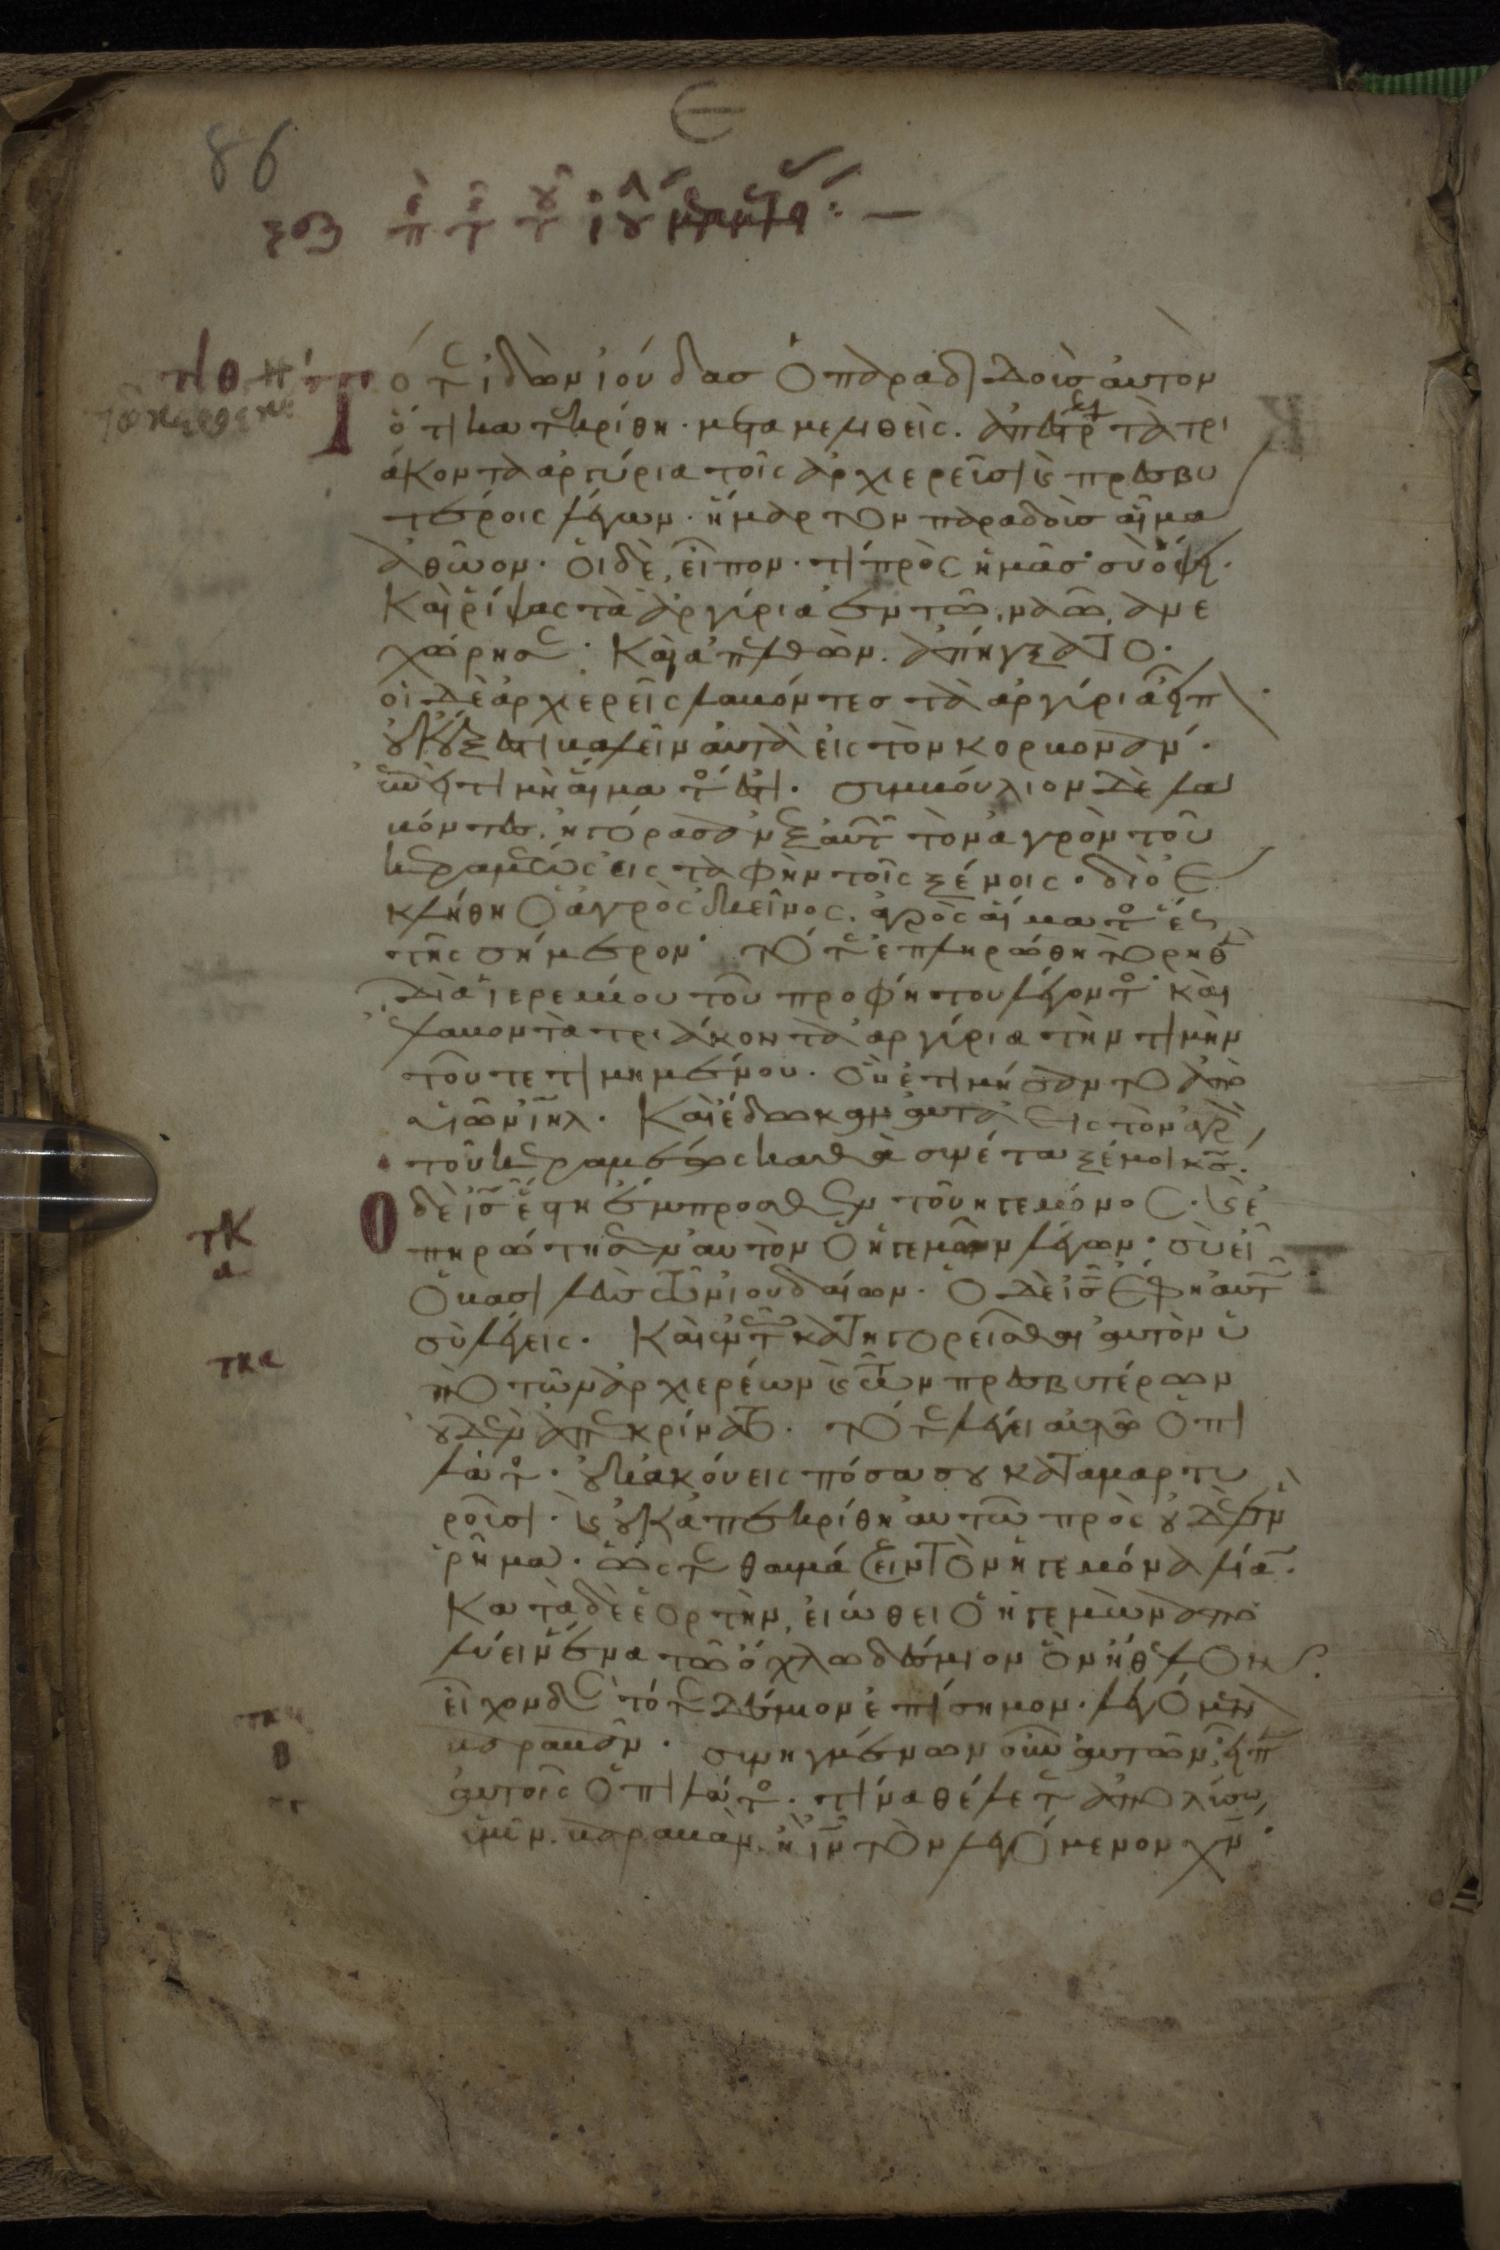 Ε
86
ξθ π τ τ ιου
τιθ
Τότε ἰδὼν ἰούδας ὁ παραδιδοὺς αὐτὸν
ὅτι κατεκρίθη· μεταμεληθεὶς. ἀπέστρεψε τὰ τρι
άκοντα ἀργύρια τοῖς ἀρχιερεῦσι καὶ πρεσβυ
τέροις λέγων· ἥμαρτον παραδοὺς αἷμα
ἀθῶον· οἱ δὲ, εἶπον· τί πρὸς ἡμᾶς· σὺ ὄψη·
Καὶ ῥίψας τὰ ἀργύρια ἐν τῶ ναῶ, ἀνε
χώρησε· Καὶ ἀπελθὼν. ἀπήγξατο·
οἱ δὲ ἀρχιερεῖς λαβόντες τὰ ἀργύρια εἶπον
οὐκ ἔξεστι βαλεῖν αὐτὰ εἰς τὸν κορβονᾶν·
ἐπεὶ τιμὴ αἵματος ἐστι· συμβούλιον δὲ λα
βόντες, ἠγόρασαν ἐξ αὐτῶν τὸν ἀγρὸν τοῦ
κεραμέως εἰς ταφὴν τοῖς ξένοις· διὸ ἐ
κλήθη ὁ ἀγρὸς ἐκεῖνος. ἀγρὸς αἵματος ἕως
τῆς σήμερον· Τότε ἐπληρώθη τὸ ρηθὲν
διὰ ἱερεμίου τοῦ προφήτου λέγοντος· καὶ
ἔλαβον τὰ τριάκοντα ἀργύρια τὴν τιμὴν
τοῦ τετιμημένου· ὃν ἐτιμήσαντο ἀπὸ
υἱῶν ιηλ· Καὶ ἔδωκαν αὐτὰ εἰς τὸν ἀγρὸν
τοῦ κεραμέως καθὰ συνέταξέ μοι κς·
Ο δὲ ις ἔστη ἔμπροσθεν τοῦ ἡγεμόνος· καὶ ἐ
πηρώτησεν αὐτὸν ὁ ἡγεμὼν λέγων· σὺ εἶ
ὁ βασιλεὺς τῶν ἰουδαίων· ὁ δὲ ις ἔφη αὐτῶ
σὺ λέγεις· Καὶ ἐν τῶ κατηγορεῖσθαι αὐτὸν ὑ
πὸ τῶν ἀρχιερέων καὶ τῶν πρεσβυτέρων
οὐδὲν ἀπεκρίνατο· Τότε λέγει αὐτῶ ὁ πι
λάτος· οὐκ ἀκούεις πόσα σου καταμαρτυ
ροῦσι· καὶ οὐκ ἀπεκρίθη αὐτῶ πρὸς οὐδὲ ἓν
ῥῆμα· ὥστε θαυμάζειν τὸν ἡγεμόνα λίαν·
Κατὰ δὲ ἑορτὴν, εἰώθει ὁ ἡγεμὼν ἀπο
λύειν ἕνα τῶ ὄχλω δέσμιον ὃν ἤθελον·
εἶχον δὲ τότε δέσμιον ἐπίσημον· λεγόμενον
βαραββᾶν· συνηγμένων οὖν αὐτῶν, εἶπεν
αὐτοῖς ὁ πιλάτος· τίνα θέλετε ἀπολύσω
ὑμῖν. βαραββὰν, ἢ ιν τὸν λεγόμενον χν·
τκ
α
τκα